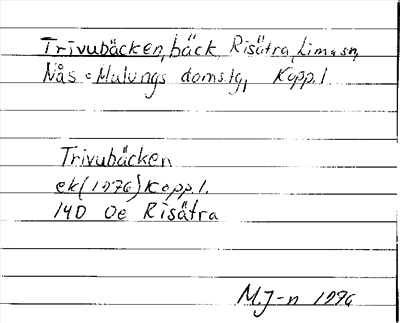 Trivubäcken, bäck Risätra, Lima sn,
Nås o Malungs domstg, Kopp. l
Trivubäcken
ek (1976) Kopp. l.
140 Oe Risätra
M.J-n 1976